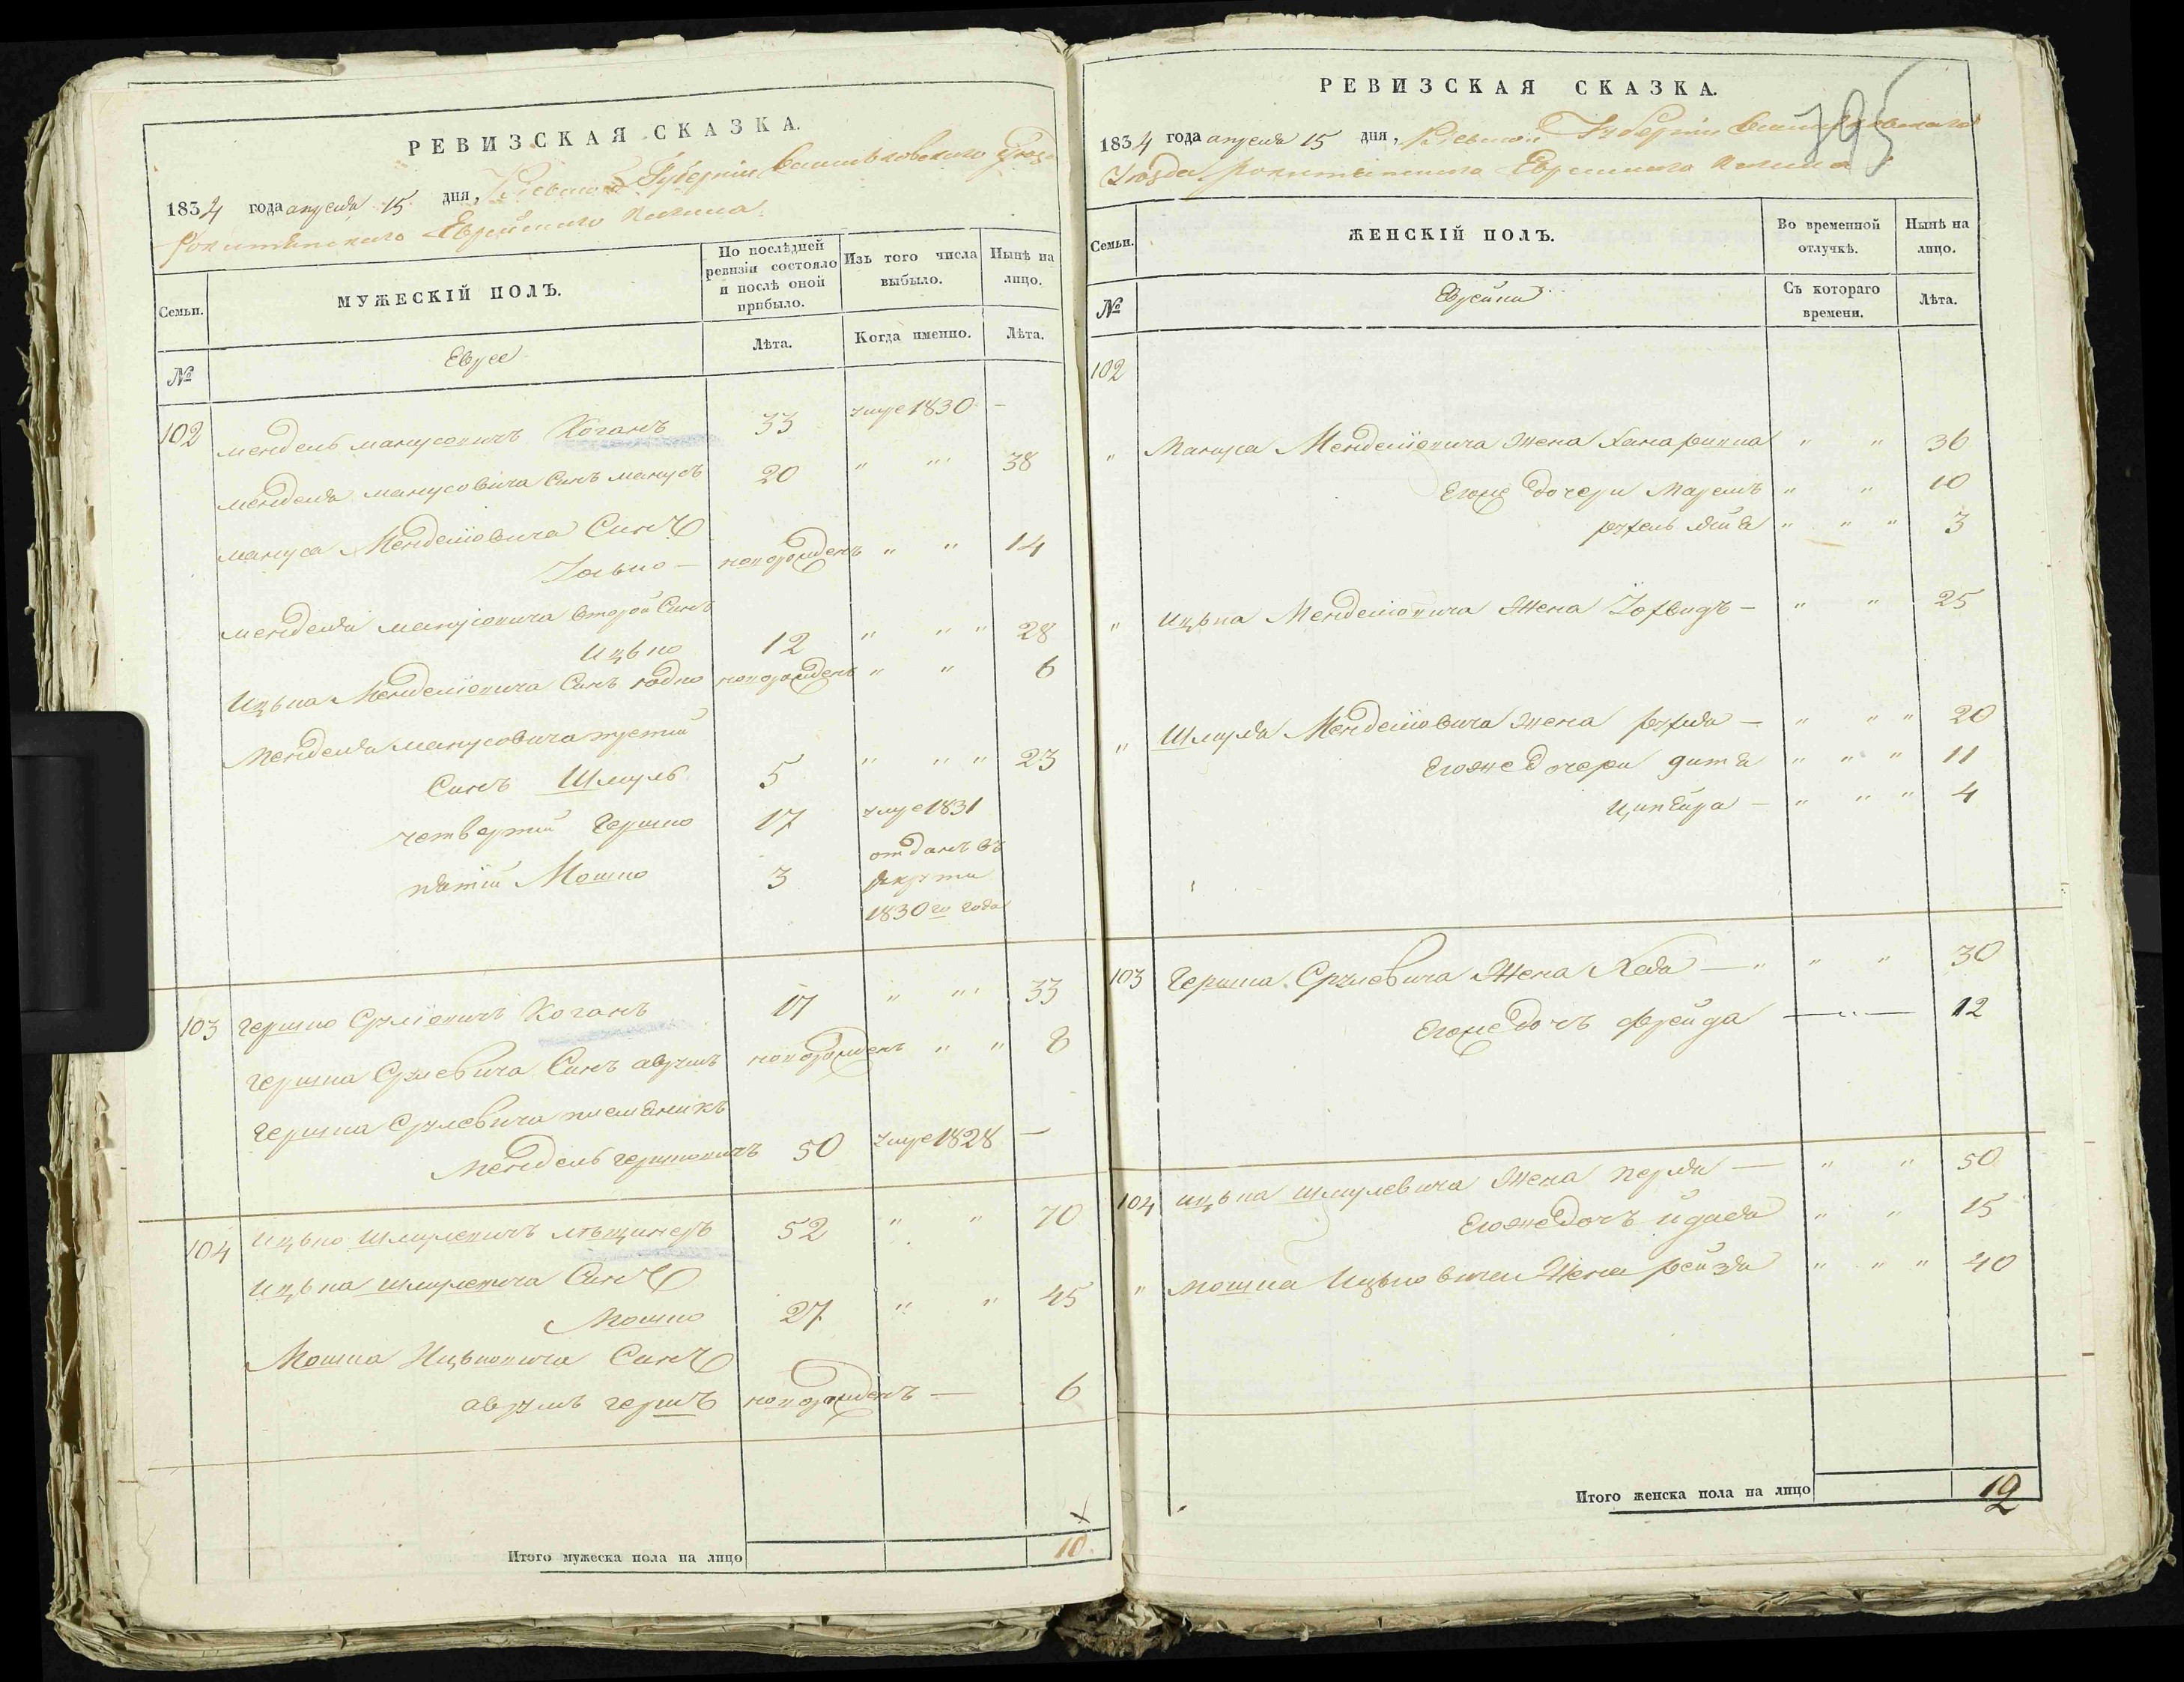 РЕВИЗСКАЯ СКАЗКА.
1834 года апреля 15 дня, Киевской Губернии Васильковского Уезда
Рокитянского Еврейского Кагала
Семьи. МУЖЕСКІЙ ПОЛЪ. По послѣдней ревизіи состояло и послѣ оной прибыло. Изъ того числа выбыло. Нынѣ на лицо.
№ Еврее Лѣта. Когда именно. Лѣта.
102 Мендель Манусовичъ Коганъ 33 умре 1830 —
Менделя Манусовича Синъ Манусъ 20 " " 38
Мануса Менделіовича Синъ
Іосько — новорожденъ " " 14
Менделя Манусовича второй Синъ
Ицько 12 " " " 28
Ицька Менделіовича Синъ Юдко новорожденъ " " 6
Менделя Манусовича третій
Синъ Шмуль 5 " " " 23
четвертій Гершко 17 умре 1831
пятій Мошко 3 отданъ въ
рекрути
1830го года
103 Гершко Сруліовичъ Коганъ 17 " " 33
Гершка Срулевича Синъ Аврумъ новорожденъ " " 8
Гершка Срулевича племѣникъ
Мендель Гершковичъ 50 умре 1828 —
104 Ицько Шмулевичъ 52 " " 70
Ицька Шмулевича Синъ
Мошко 27 " " 45
Мошка Ицьковича Синъ
Аврумъ Гершъ новорожденъ — 6
Итого мужеска пола на лицо 10.
РЕВИЗСКАЯ СКАЗКА.
795
1834 года апреля 15 дня, Киевской Губернии Васильковского
Уезда Рокитянского Еврейского Кагала
Семьи. ЖЕНСКІЙ ПОЛЪ. Во временной отлучкѣ. Нынѣ на лицо.
№ Еврейки Съ котораго времени. Лѣта.
102
" Мануса Менделіовича Жена Хана Ривка " " 36
Егоже дочери Маремъ " " 10
Рухель Лѣя " " " 3
" Ицька Менделіовича Жена Іохвидъ — " " 25
" Шмуля Менделіовича Жена Рухля — " " " 20
Егоже дочери " " " 11
Ципѣйра — " " " 4
103 Гершка Срулевича Жена Хая — " " " 30
Егоже дочъ Фрейда — " — 12
104 Ицька Шмулевича Жена Перля — " " 50
Егоже дочъ " " 15
" Мошка Ицьковича Жена Рейзя " " " 40
Итого женска пола на лицо 12